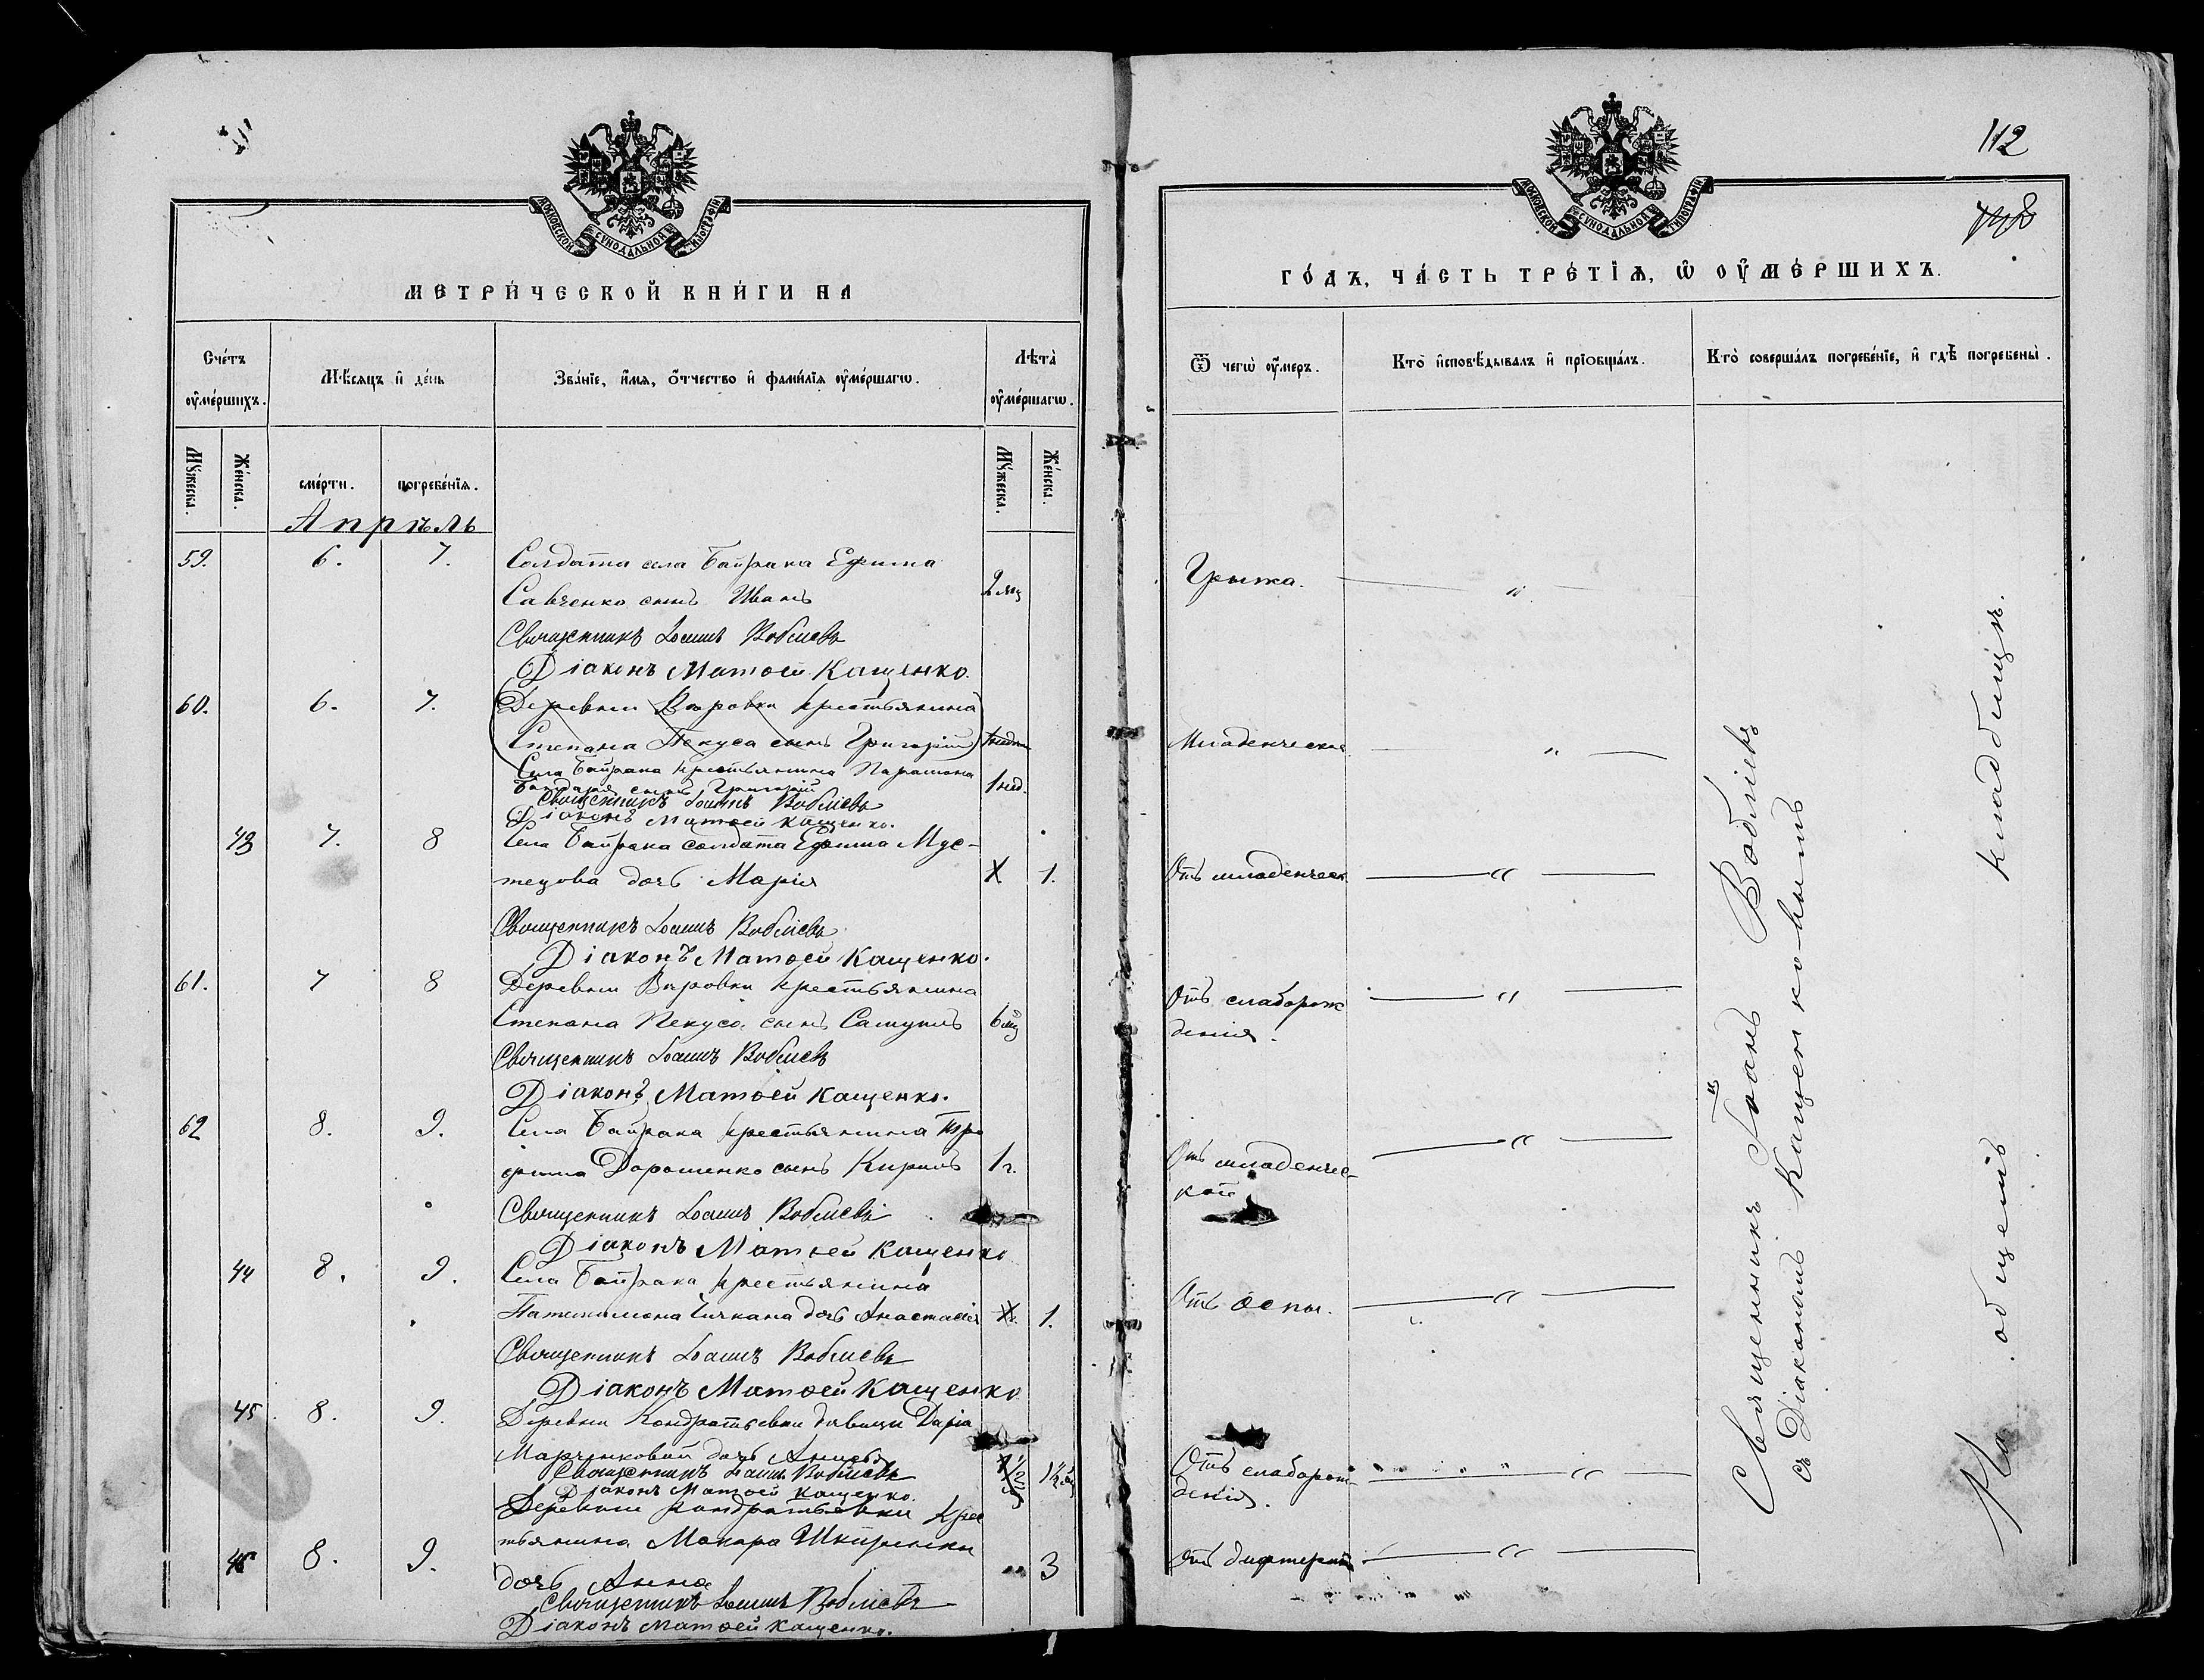 112
МОСКОВСКОЙ СѴНОДАЛЬНОЙ ТИПОГРАФІИ
МЕТРИ́ЧЕСКОЙ КНИ́ГИ НА
Сче́тъ оу҆ме́ршихъ.
Мѣ́сяцъ и҆ де́нь
Зва́нїе, и҆́мя, ѻ҆́тчество и҆ фами́лїя оу҆ме́ршагѡ.
Лѣта̀ оу҆ме́ршагѡ.
Мꙋ́жеска.
Же́нска.
сме́рти.
погребе́нїя.
Мꙋ́жеска.
Же́нска.
Апрѣль
59. 6. 7. Солдата села Байрака Ефима
Савченко сынъ Иванъ 2 мц
Священникъ Іоаннъ Воблиевъ
Діаконъ Матѳей Кащенко.
60. 6. 7. (Деревни Вировки крестьянина
Степана Пекуса сынъ Григорій)
Села Байрака крестьянина Парамона 1 нед.
сынъ Григорій
Священникъ Іоаннъ Воблиевъ
Діаконъ Матѳей Кащенко.
43 7. 8 Села Байрака солдата Ефима Мус-
тецова дочь Марія 1.
Священникъ Іоаннъ Воблиевъ
Діаконъ Матѳей Кащенко.
61. 7 8 Деревни Вировки крестьянина
Степана Пекуса сынъ Самуилъ 6 мц
Священникъ Іоаннъ Воблиевъ
Діаконъ Матѳей Кащенко.
62 8. 9. Села Байрака крестьянина Тро
фима Дорошенко сынъ Кирилъ 1 г.
Священникъ Іоаннъ Воблиевъ
Діаконъ Матѳей Кащенко
44 8. 9. Села Байрака крестьянина
дочь Анастасія 1.
Священникъ Іоаннъ Воблиевъ
Діаконъ Матѳей Кащенко
45 8. 9. Деревни Кондратьевки дѣвицы Даріи
Марченковой дочь
Священникъ Іоаннъ Воблиевъ
Діаконъ Матѳей Кащенко.
8. 9. Деревни Кондратьевки Крес
тьянина Макара
дочь Анна 3
Священникъ Іоаннъ Воблиевъ
Діаконъ Матѳей Кащенко.
МОСКОВСКОЙ СѴНОДАЛЬНОЙ ТИПОГРАФІИ
ГО́ДЪ, ЧА́СТЬ ТРЕ́ТЇѦ, Ѡ҆ ОУ҆МЕ́РШИХЪ.
Ѿ чегѡ̀ оу҆́меръ.
Кто̀ и҆сповѣ́дывалъ и҆ прїобща́лъ.
Кто̀ соверша́лъ погребе́нїе, и҆ гдѣ̀ погребены̀.
Грыжа.
Младенческая
Отъ младенческ
Отъ слаборож
денія.
Отъ младенчес-
кой
Отъ оспы.
Отъ слаборож-
денія.
Отъ дифтерита
Священникъ Іоаннъ Воблиевъ
съ Діакономъ Кащенковымъ
На общемъ кладбищѣ.